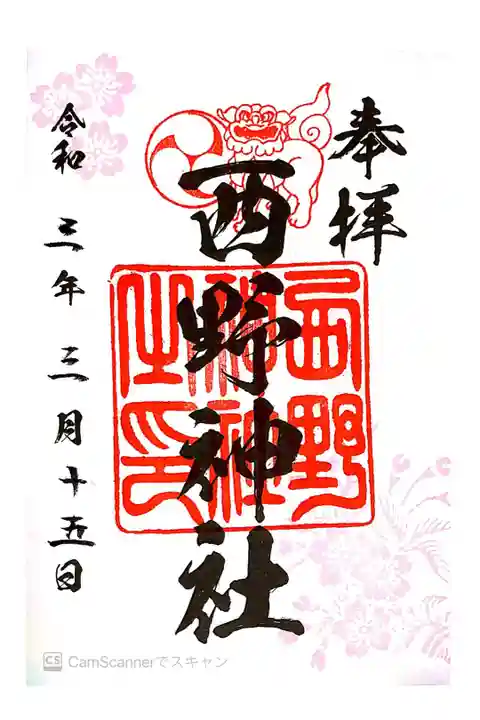 奉拝
西野神社
西野
神社
之印
令和 三年 三月十五日
CS CamScannerでスキャン